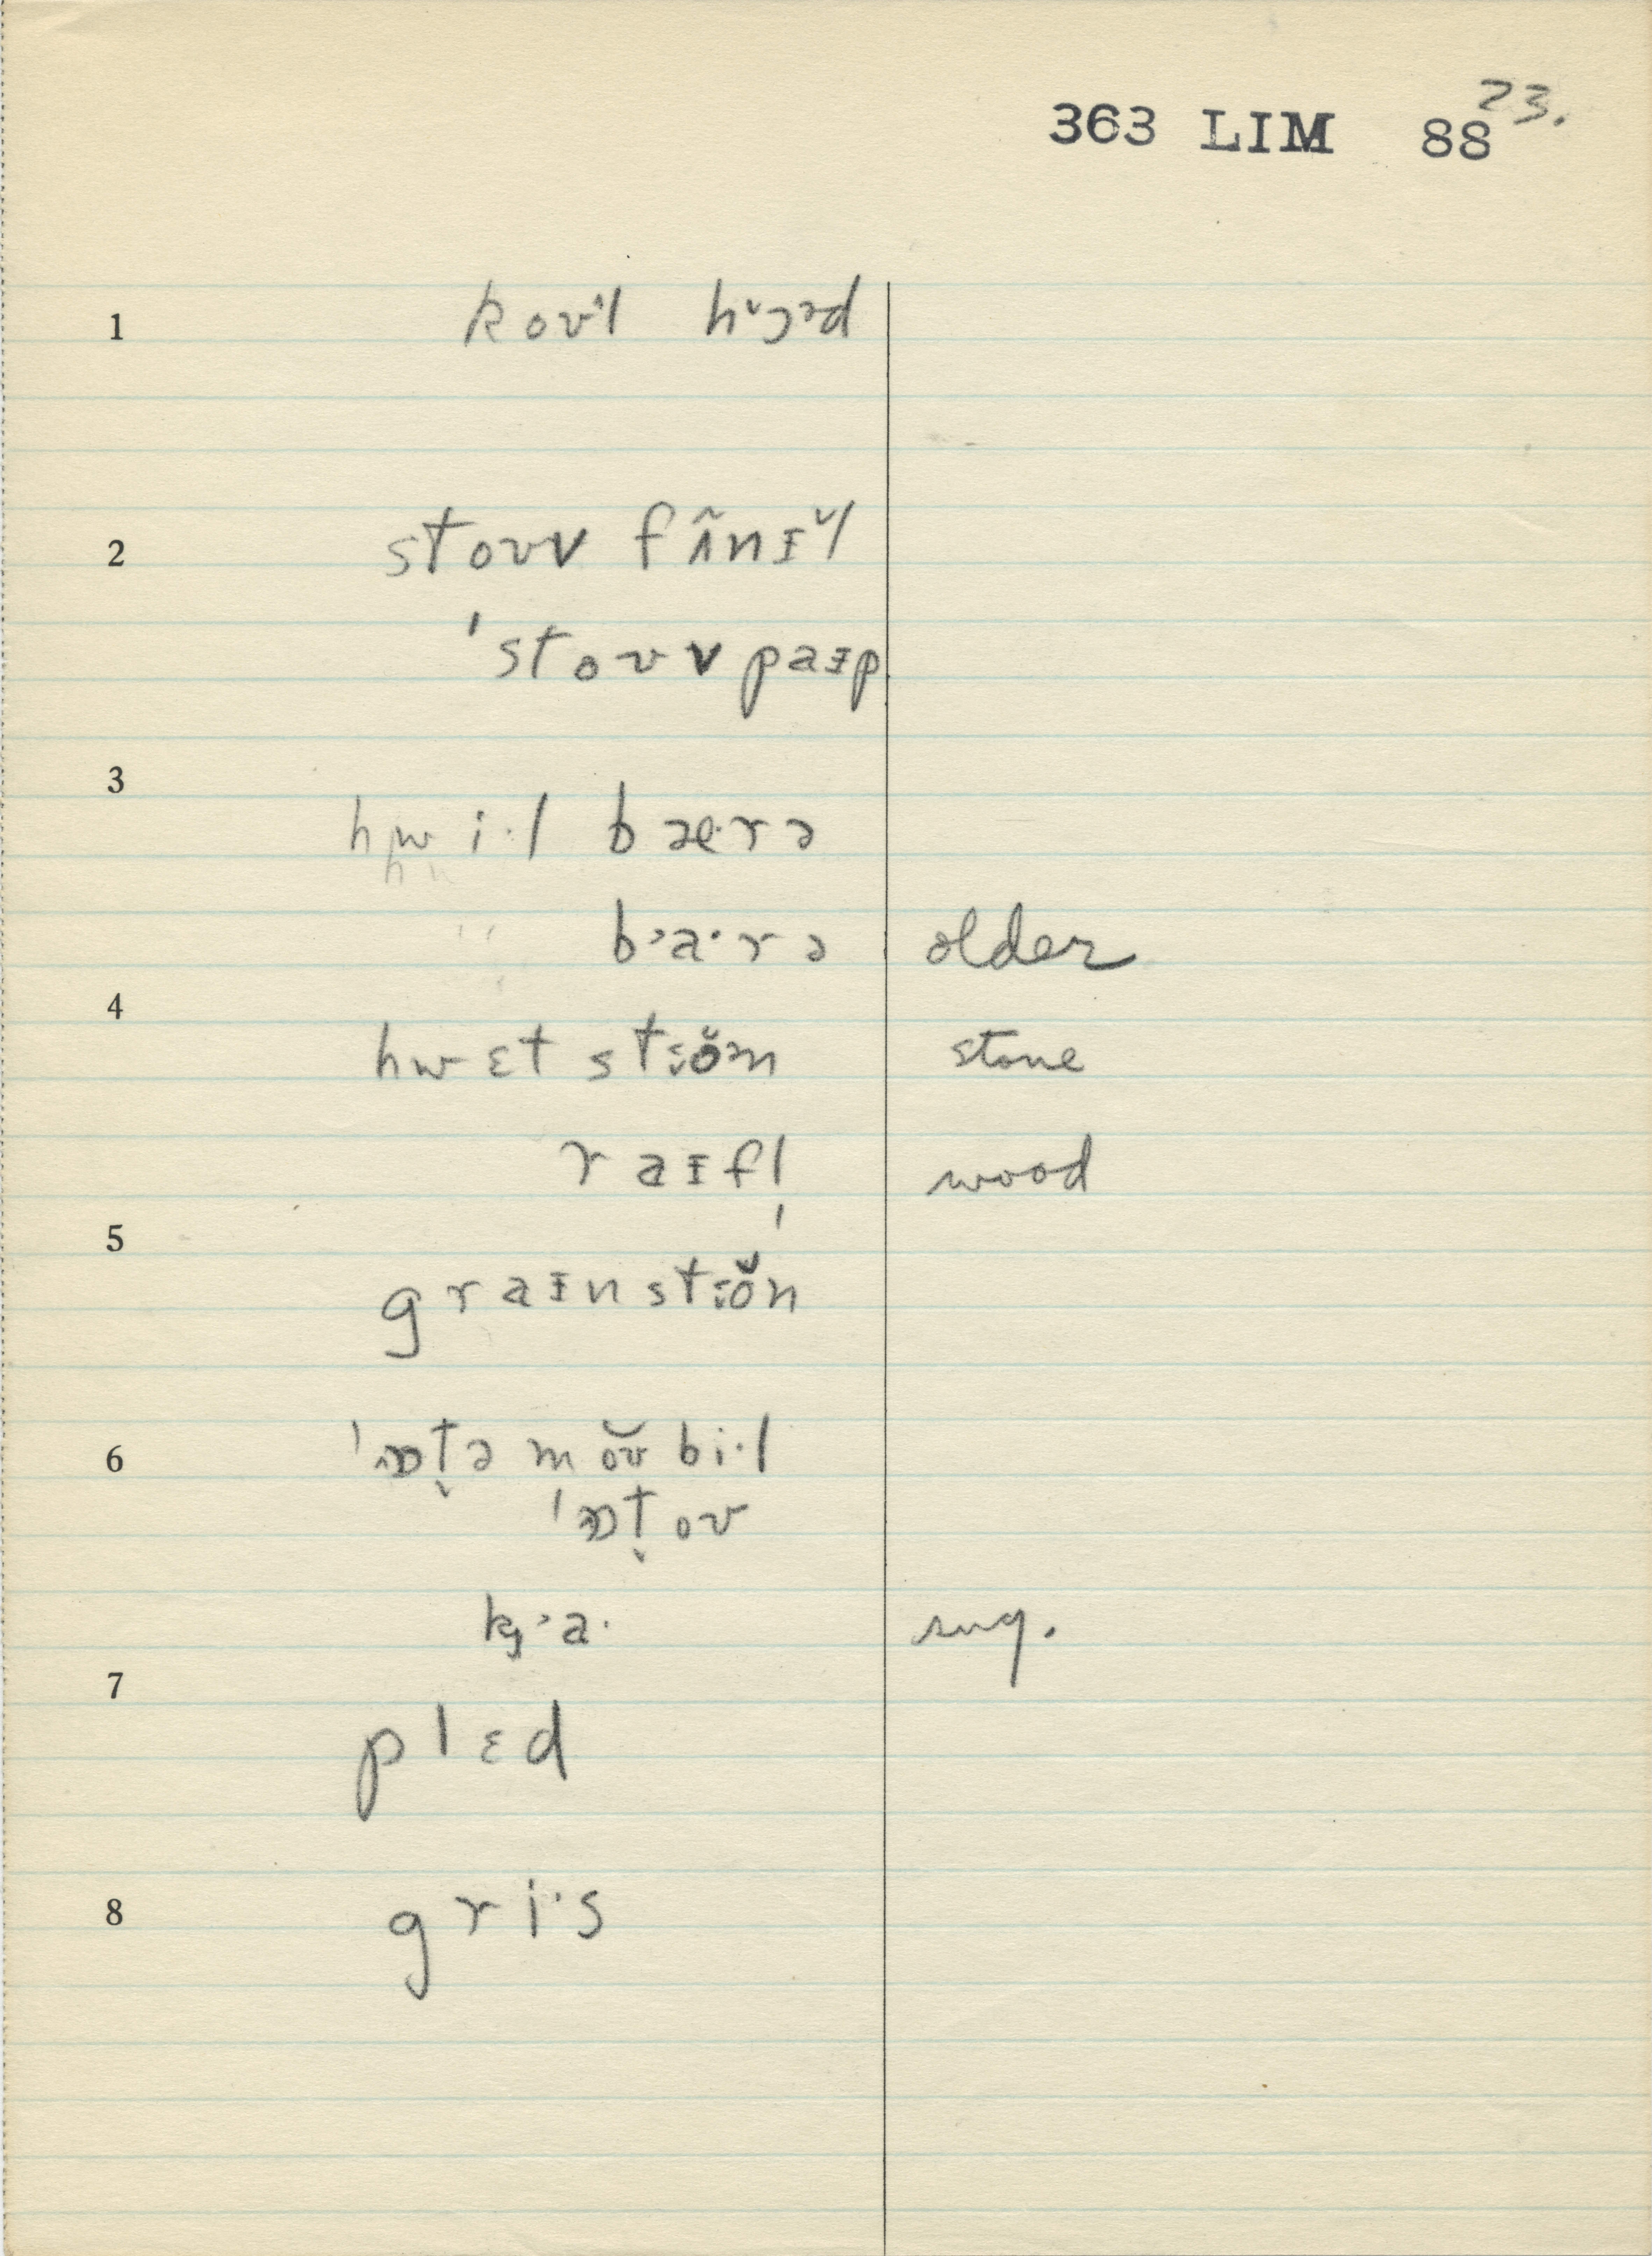 363 LIM 88 23.
1 koʊᵊl hᵛɔᵊd
2 stoʊv fʌ̃nɪ̆l
ˈstoʊvpaɪp
3 hwi·l bæ·rə
" b᾽a·rə older
4 hwɛt stɵ̆n stone
raɪfl̩ wood
5 graɪnstɵ̆n
6 ˈɒt̬əmoʊ̆bi·l
ˈɒt̬oʊ
k᾽a· sug.
7 plɛd
8 gri·s